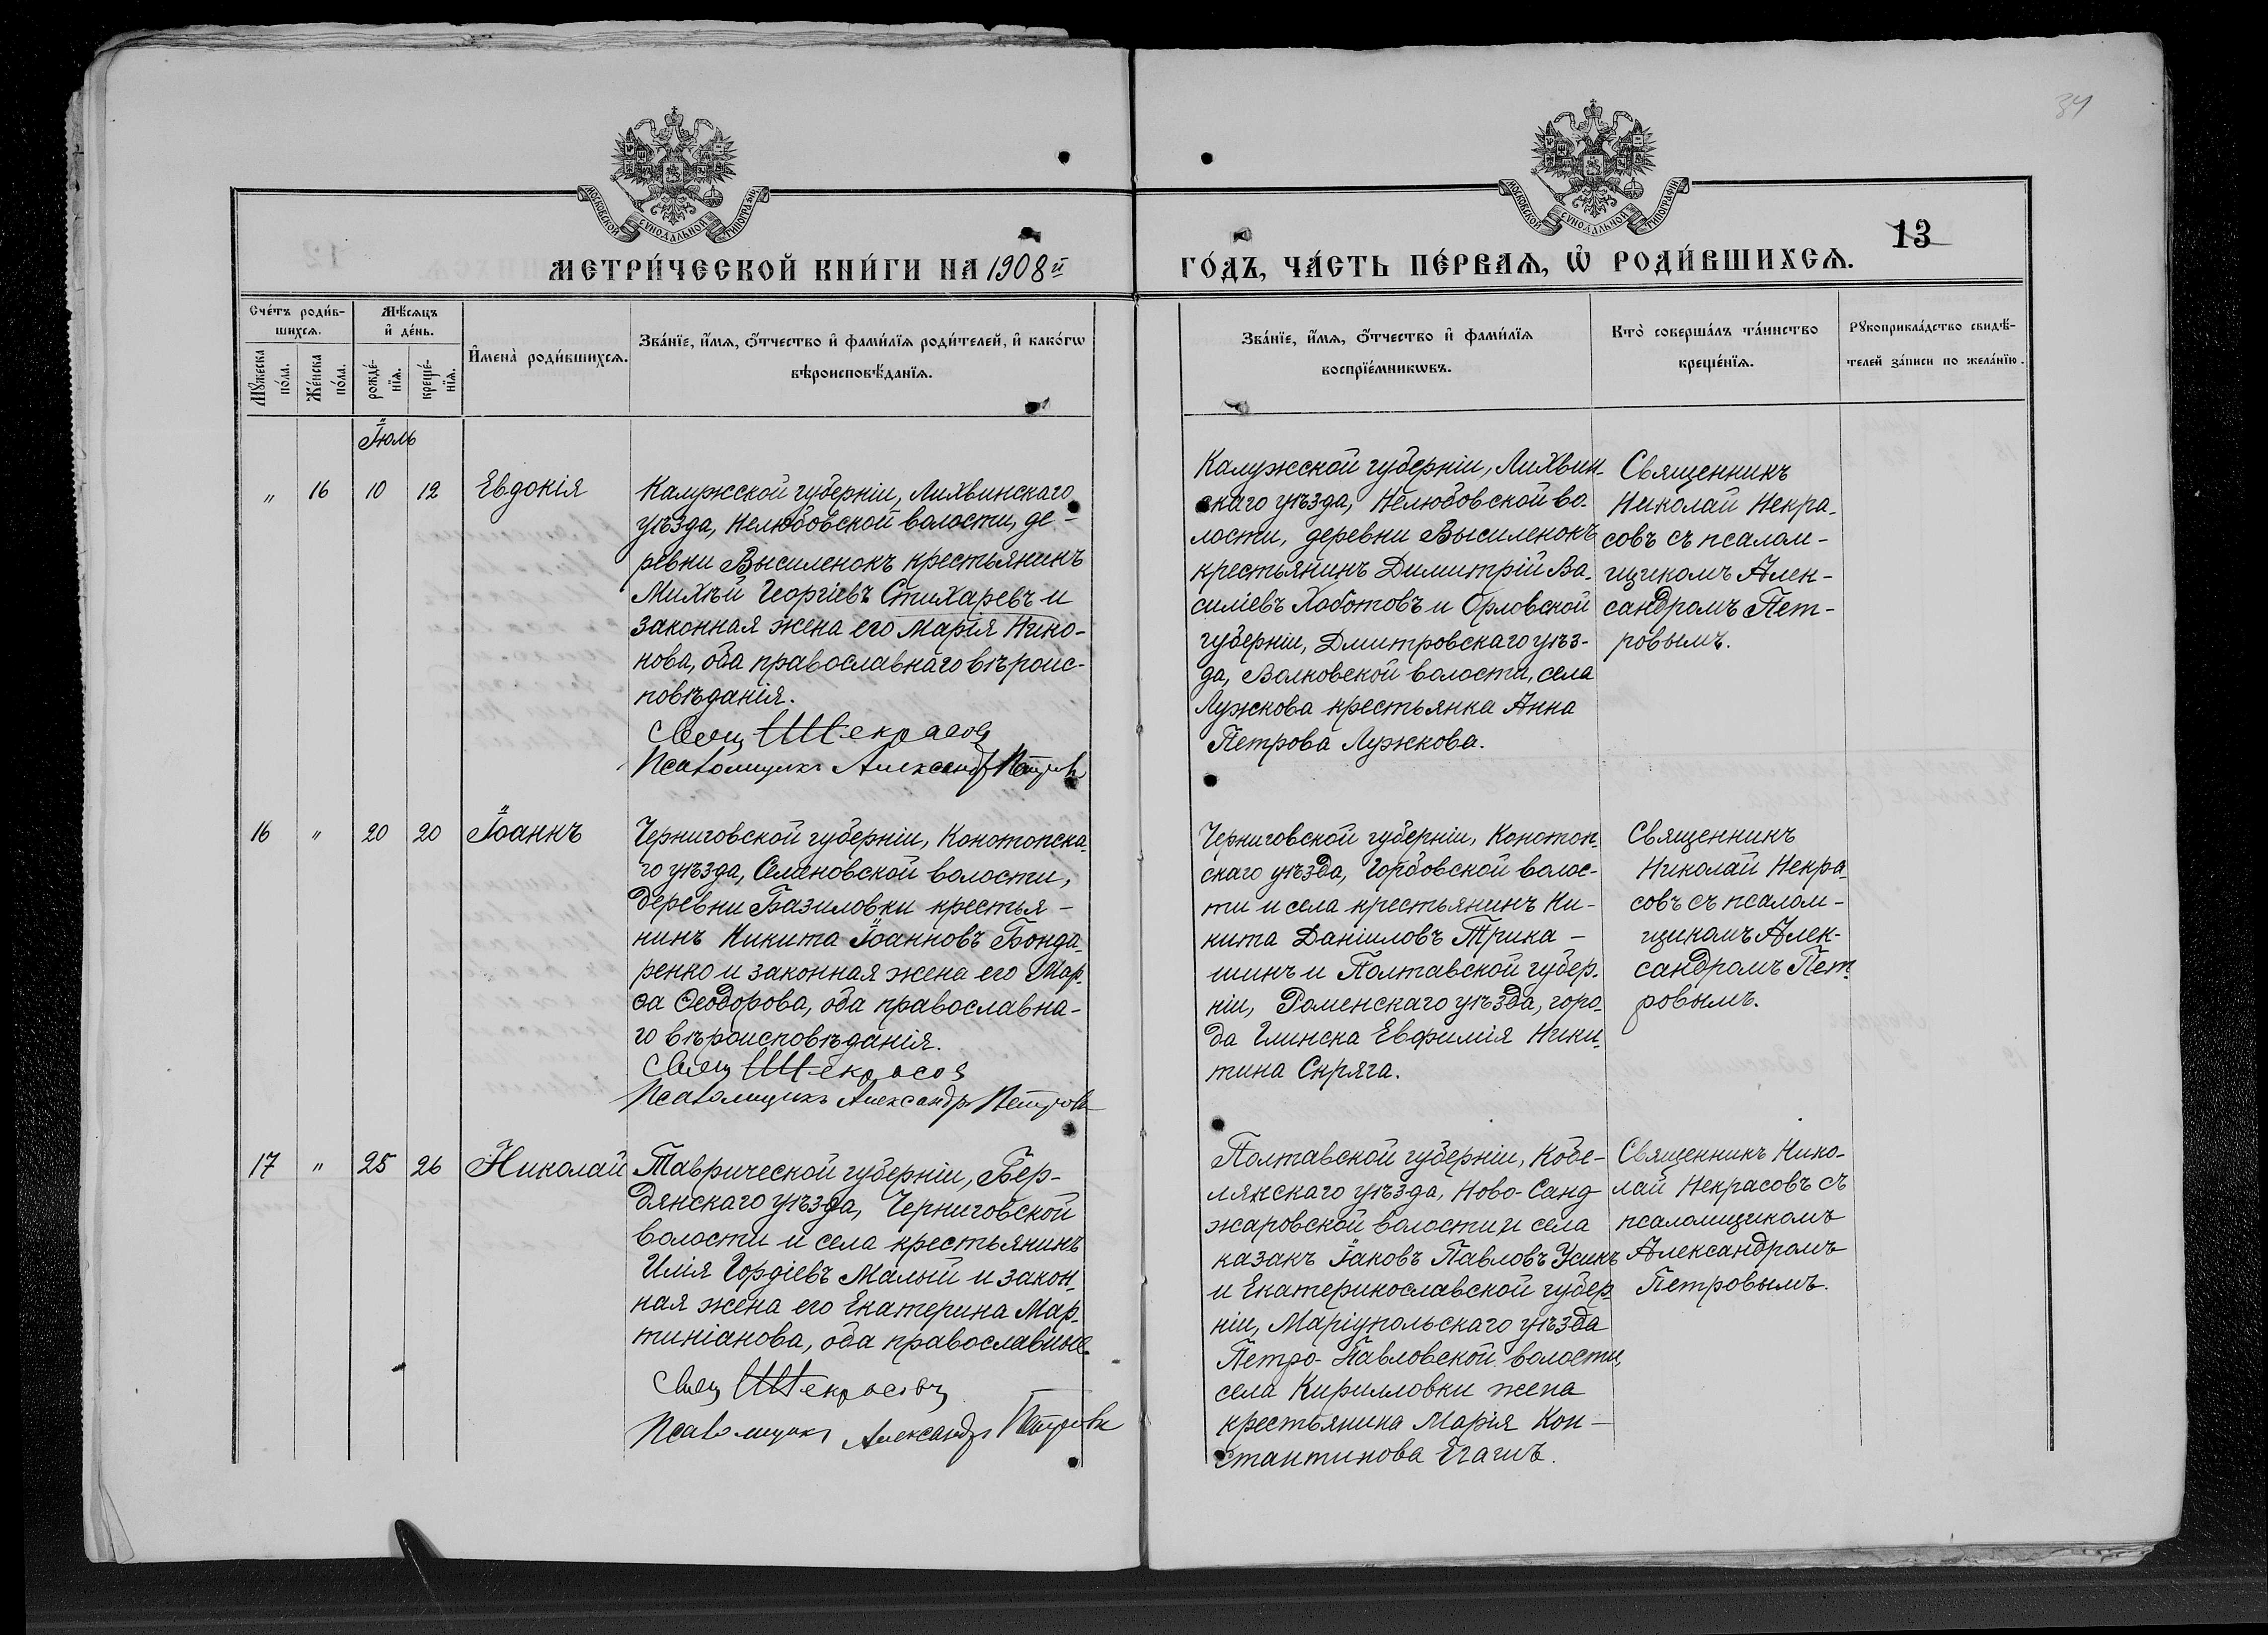 34
МОСКОВСКОЙ СѴНОДАЛЬНОЙ ТИПОГРАФІИ
МОСКОВСКОЙ СѴНОДАЛЬНОЙ ТИПОГРАФІИ
13
МЕТРИ́ЧЕСКОЙ КНИ́ГИ НА 1908й
ГО́ДЪ, ЧА́СТЬ ПЕ́РВАѦ, Ѡ҆ РОДИ́ВШИХСѦ.
Сче́тъ роди́в-
шихсѧ.
Мꙋ́жеска по́ла.
Же́нска по́ла.
Мѣ́сѧцъ
и҆ де́нь.
рожде́-нїѧ.
креще́-нїѧ.
И҆мена̀ роди́вшихсѧ.
Зва́нїе, и҆́мѧ, ѻ҆́тчество и҆ фами́лїѧ роди́телей, и҆ како́гѡ
вѣроисповѣ́данїѧ.
Зва́нїе, и҆́мѧ, ѻ҆́тчество и҆ фами́лїѧ
воспрїе́мникѡвъ.
Кто̀ соверша́лъ та́инство
креще́нїѧ.
Рꙋкоприкла́дство свидѣ́-
телей за́писи по жела́нїю.
Іюль
„ 16 10 12 Евдокія
Калужской губерніи, Лихвинскаго
уѣзда, Нелюбовской волости, де-
ревни Высиленокъ крестьянинъ
Михѣй Георгіевъ Стихаревъ и
законная жена его Марія Нико-
нова, оба православнаго вѣроис-
повѣданія.
Свящ Н Некрасовъ
Псаломщикъ Александръ Петровъ
Калужской губерніи, Лихвин-
скаго уѣзда, Нелюбовской во-
лости, деревни Высиленокъ
крестьянинъ Димитрій Ва-
силіевъ Хоботовъ и Орловской
губерніи, Дмитровскаго уѣз-
да, Волковской волости, села
Лужкова крестьянка Анна
Петрова Лужкова.
Священникъ
Николай Некра-
совъ съ псалом-
щикомъ Алек-
сандромъ Пет-
ровымъ.
16 „ 20 20 Іоаннъ
Черниговской губерніи, Конотопска-
го уѣзда, Семеновской волости,
деревни Базиловки крестья-
нинъ Никита Іоанновъ Бонда-
ренко и законная жена его Мар-
ѳа Ѳеодорова, оба православна-
го вѣроисповѣданія.
Свящ Н Некрасовъ
Псаломщикъ Александръ Петровъ
Черниговской губерніи, Конотоп-
скаго уѣзда, Горбовской волос-
ти и села крестьянинъ Ни-
кита Даніиловъ Трика-
шинъ и Полтавской губер-
ніи, Роменскаго уѣзда, горо-
да Глинска Евфимія Ники-
тина Скряга.
Священникъ
Николай Некра-
совъ съ псалом-
щикомъ Алек-
сандромъ Пет-
ровымъ.
17 „ 25 26 Николай
Таврической губерніи, Бер-
дянскаго уѣзда, Черниговской
волости и села крестьянинъ
Илія Гордіевъ Малый и закон-
ная жена его Екатерина Мар-
тиніанова, оба православные.
Свящ Н Некрасовъ
Псаломщикъ Александръ Петровъ
Полтавской губерніи, Кобе-
лякскаго уѣзда, Ново-Санд-
жаровской волости и села
казакъ Іаковъ Павловъ Усикъ
и Екатеринославской губер-
ніи, Маріупольскаго уѣзда
Петро-Павловской волости,
села Кирилловки жена
крестьянина Марія Кон-
стантинова Ягашъ.
Священникъ Нико-
лай Некрасовъ съ
псаломщикомъ
Александромъ
Петровымъ.